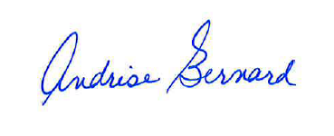 Andrise Bernard